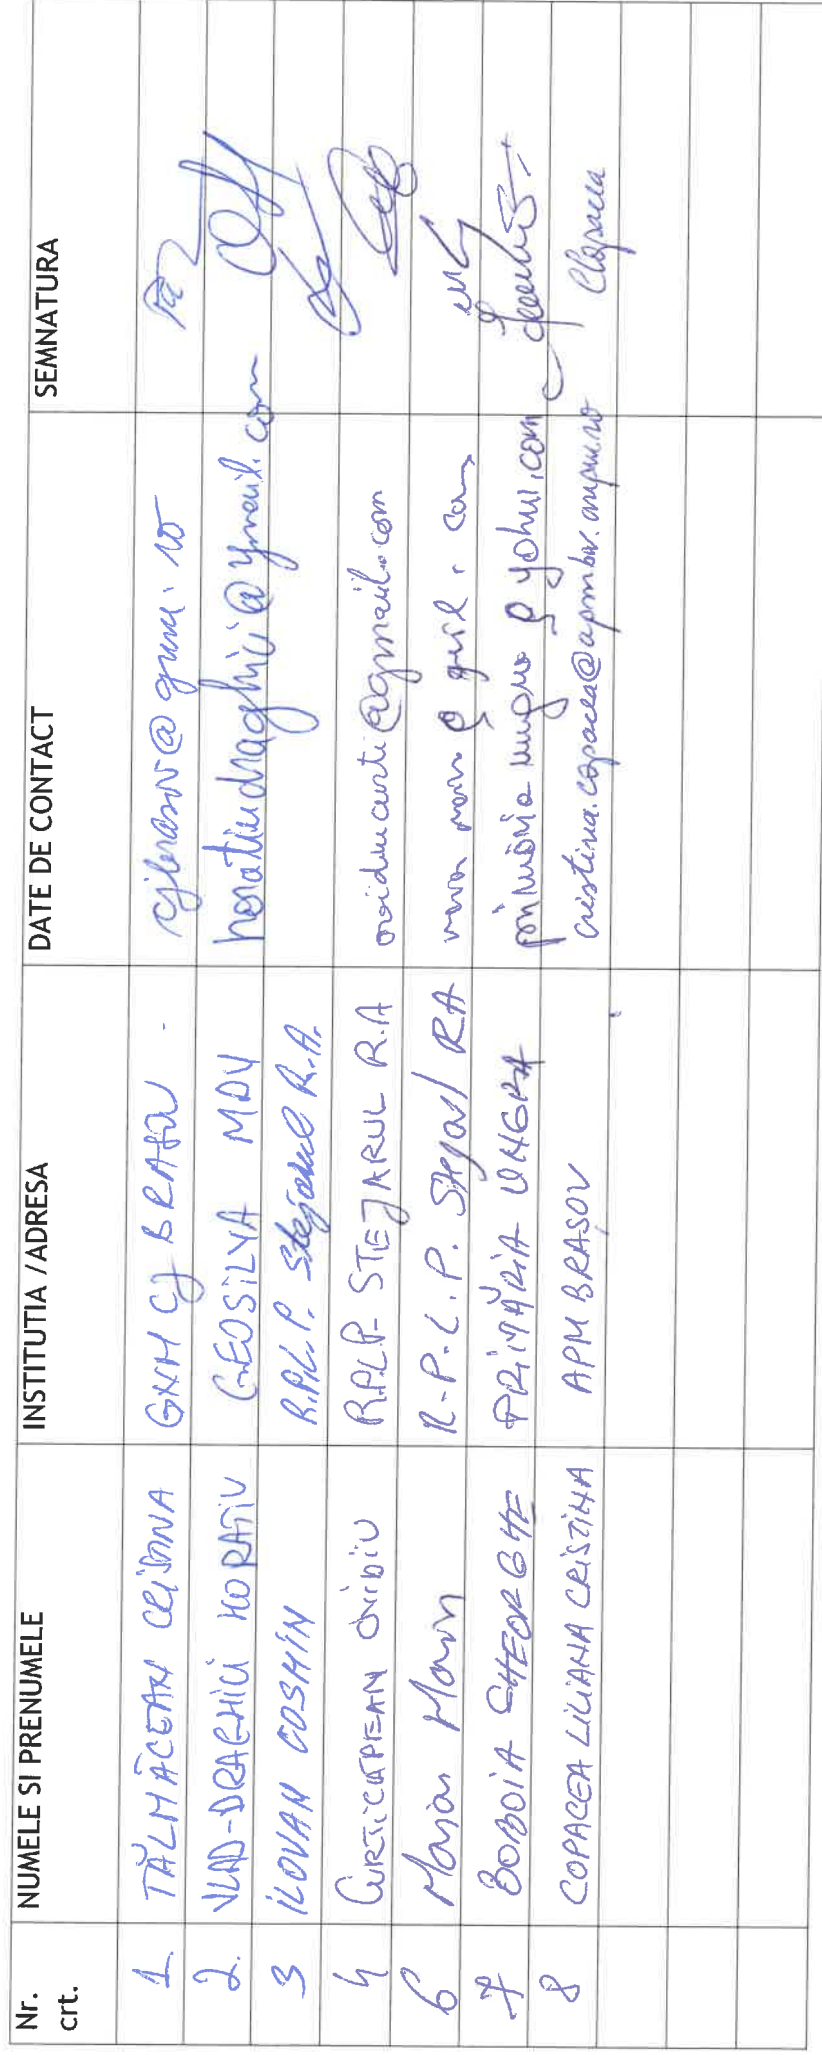 Nr. crt. NUMELE SI PRENUMELE INSTITUTIA /ADRESA DATE DE CONTACT SEMNATURA
1. TĂLMĂCEAN CRISTINA CJ BRAȘOV
2. VLAD-DRAGHICI HORATIU GEOSILVA MDV horatiudraghici@ymail.com
3 ILOVAN COSMIN R.P.L.P. Stejarul R.A.
4 CURTICAPEAN OVIDIU R.P.L.P- STEJARUL R.A ovidiucurti@gmail.com
6 Marian Marin R-P.L.P. Stejarul RA
7 BOBOIA GHEORGHE PRIMĂRIA UNGRA
8 COPACEA LILIANA CRISTINA APM BRASOV cristina.copacea@apmbv.anpm.ro